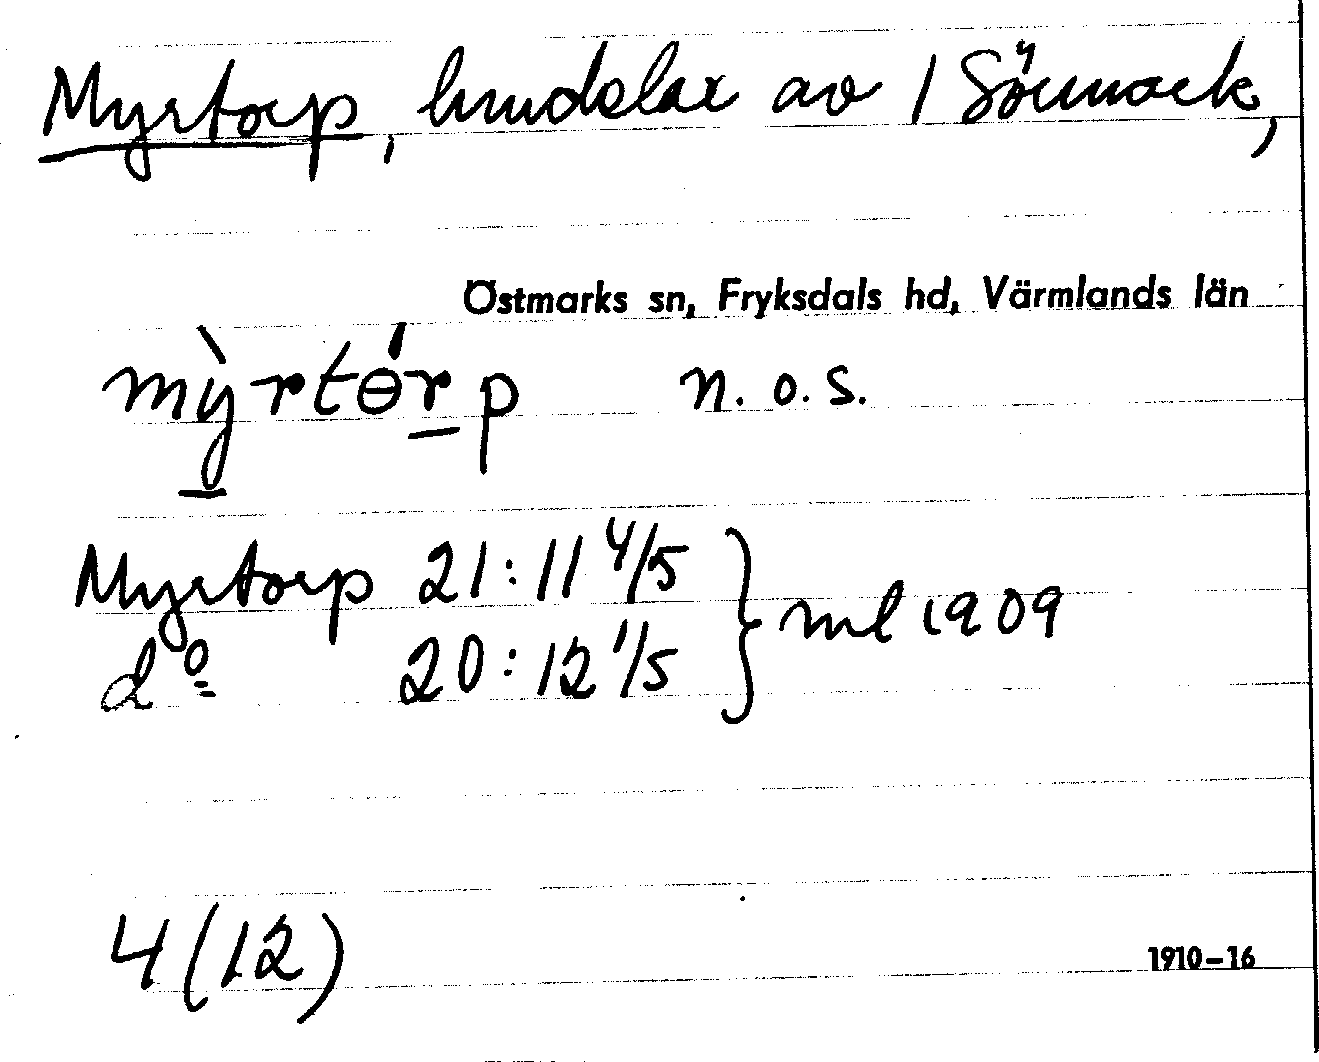 Myrtorp, hmdelar av 1 Sörmark,
Östmarks sn, Fryksdals hd, Värmlands län
mỳrtɵ́rp n. o. s.
Myrtorp 21:11 4/5 } ml 1909
do 20:12 1/5
4(12)
1910–16